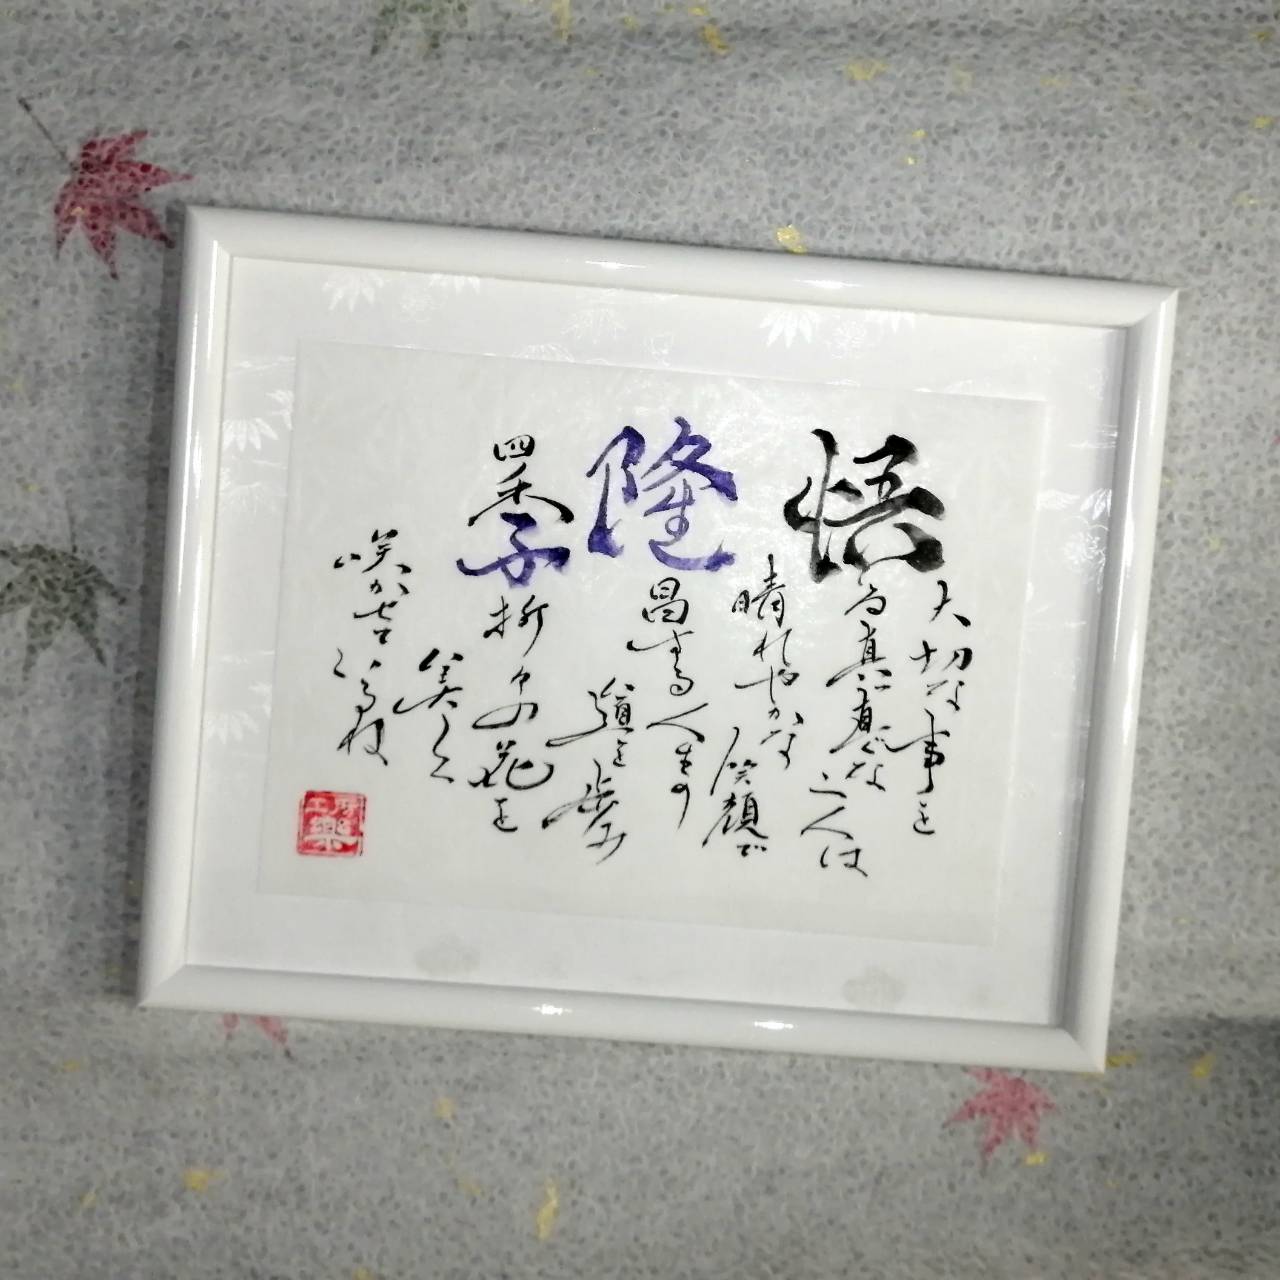 大切な事を
悟る真直な二人は
晴れやかな笑顔で
隆昌する人生の
道を歩み
四季折々の花を
美しく
咲かせている様